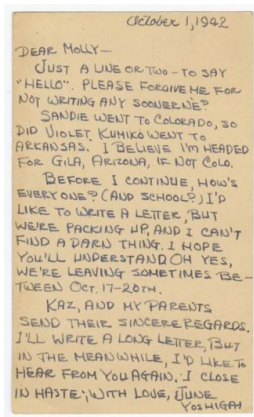 October 1, 1942
DEAR MOLLY—
JUST A LINE OR TWO - TO SAY
"HELLO". PLEASE FORGIVE ME FOR
NOT WRITING ANY SOONER NE?
SANDIE WENT TO COLORADO, SO
DID VIOLET. KUMIKO WENT TO
ARKANSAS. I BELIEVE I'M HEADED
FOR GILA, ARIZONA, IF NOT COLO.
BEFORE I CONTINUE, HOW'S
EVERYONE? (AND SCHOOL?) I'D
LIKE TO WRITE A LETTER, BUT
WE'RE PACKING UP, AND I CAN'T
FIND A DARN THING. I HOPE
YOU'LL UNDERSTAND. OH YES,
WE'RE LEAVING SOMETIMES BE-
TWEEN OCT. 17-20TH.
KAZ, AND MY PARENTS
SEND THEIR SINCERE REGARDS.
I'LL WRITE A LONG LETTER, BUT
IN THE MEANWHILE, I'D LIKE TO
HEAR FROM YOU AGAIN. I CLOSE
IN HASTE; WITH LOVE, JUNE
YOSHIGAI